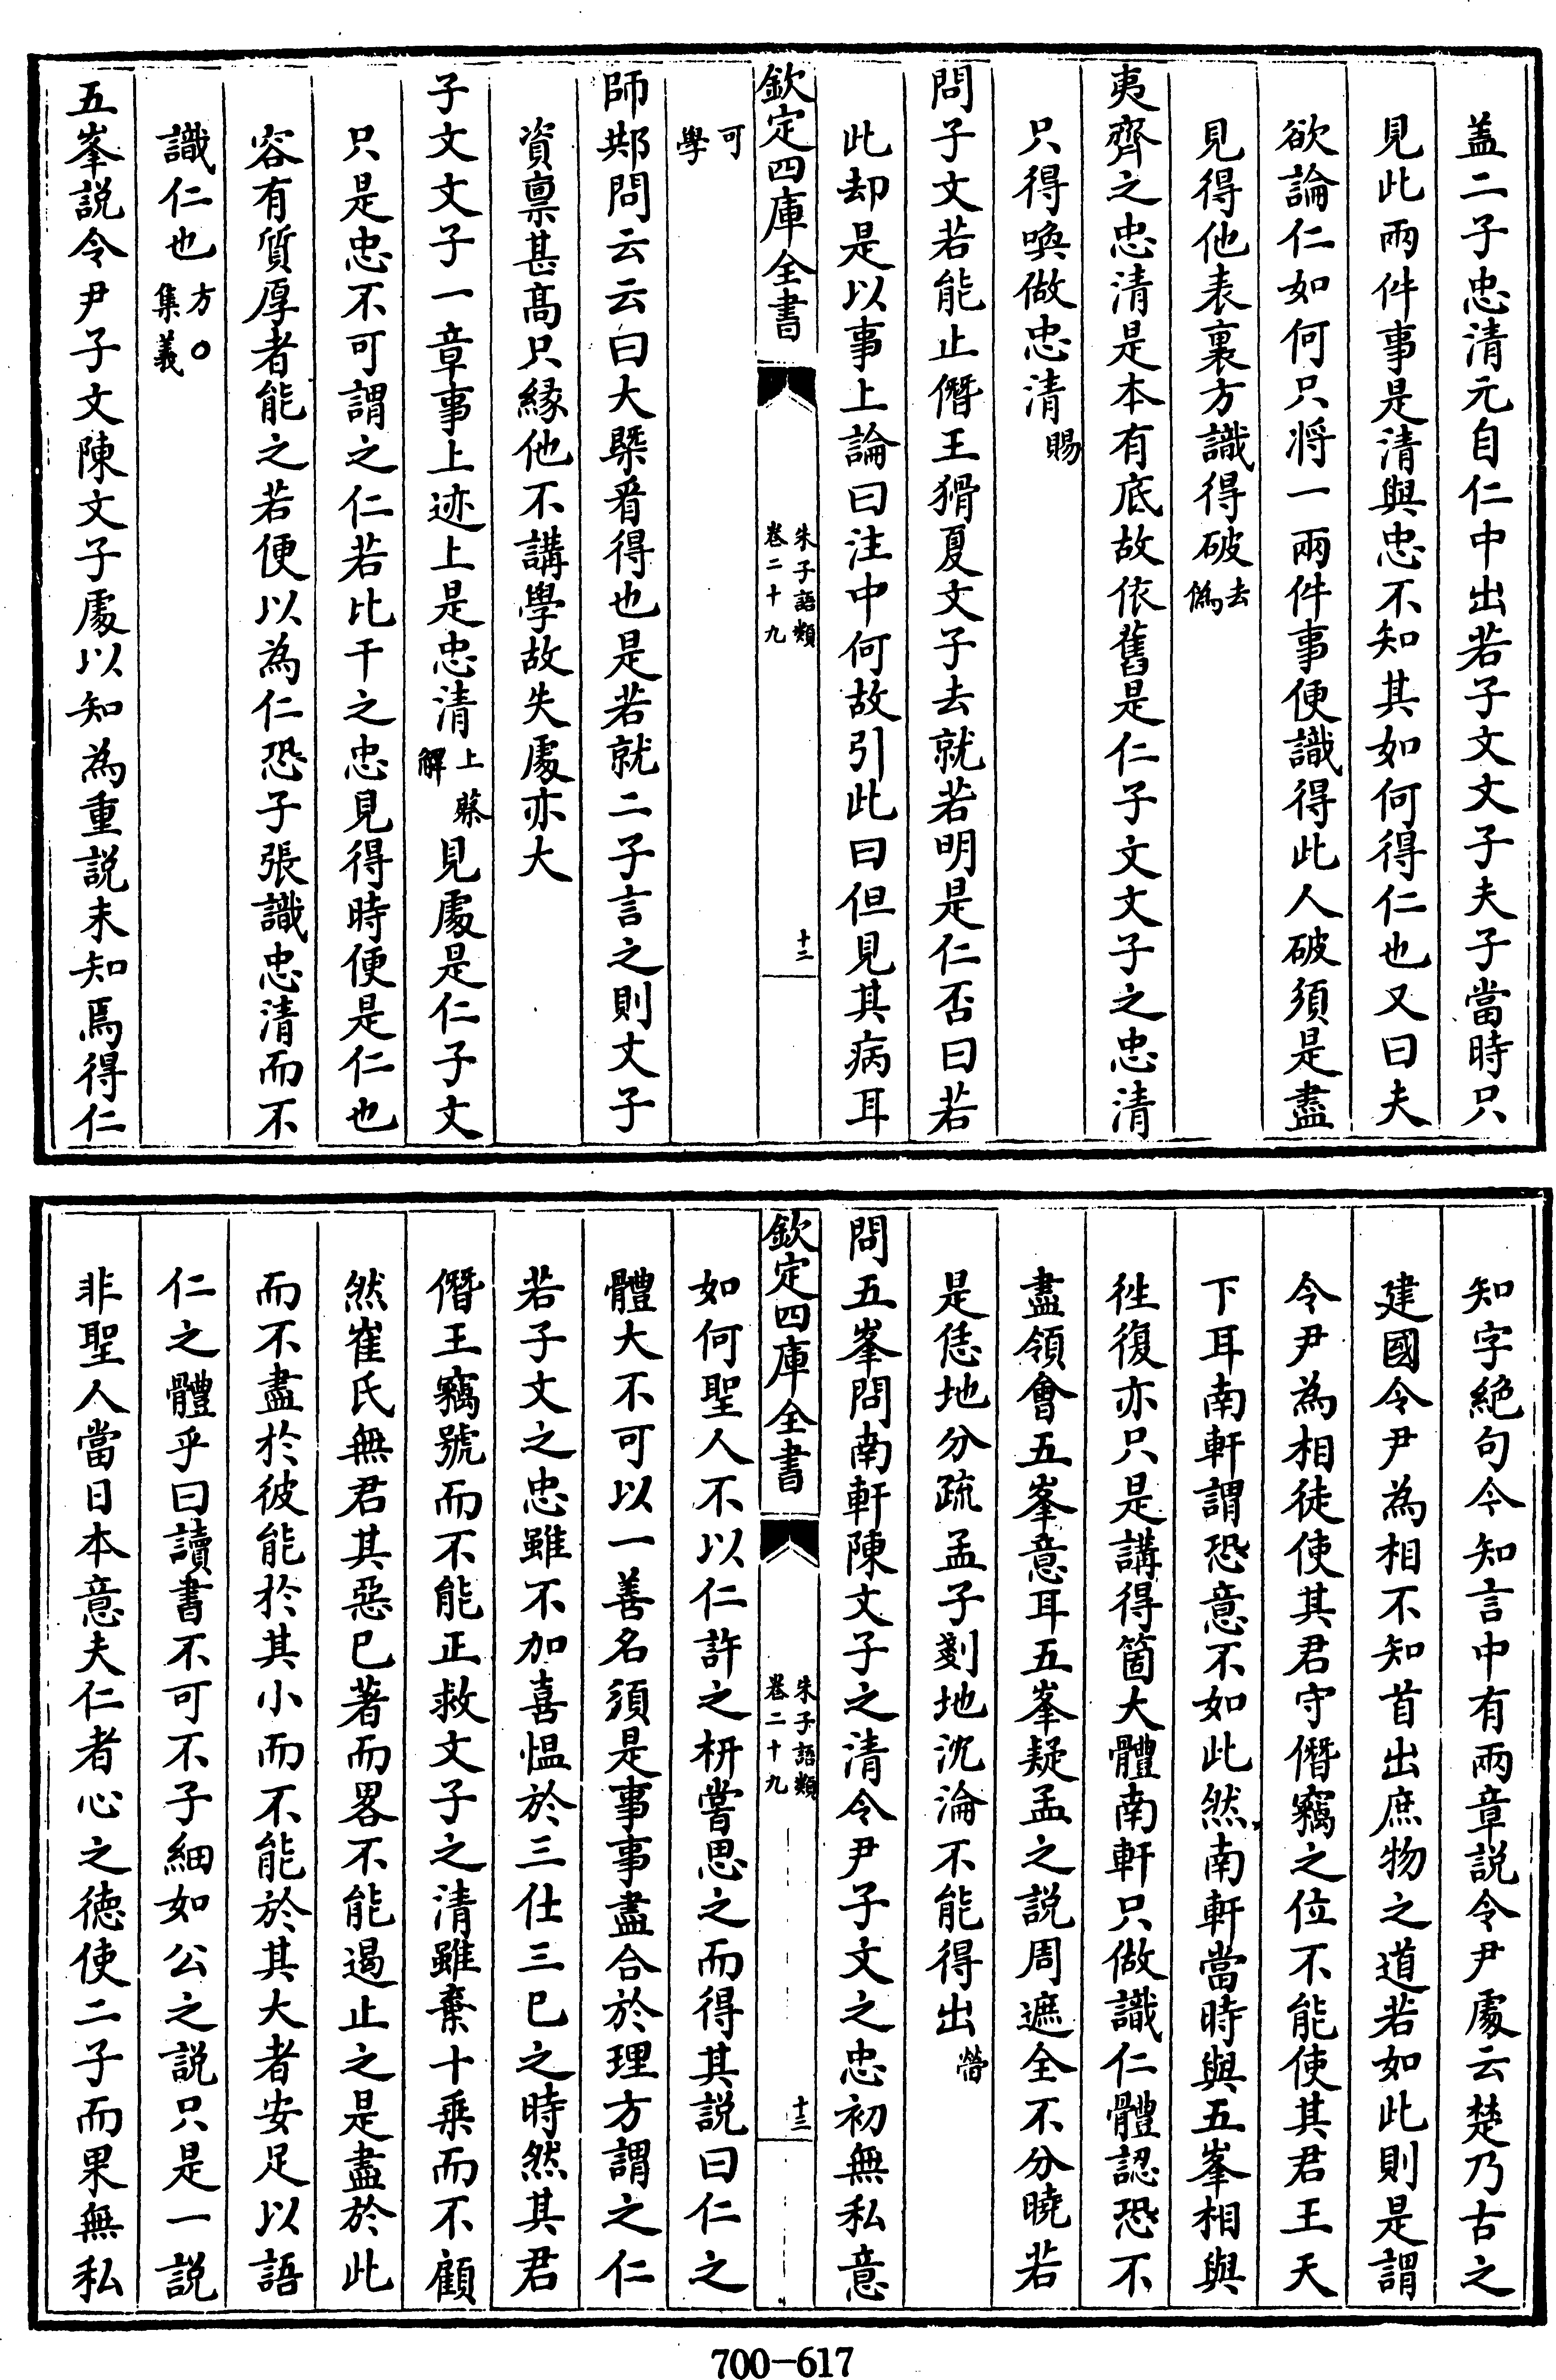 盖二子忠清元自仁中出若子文文子夫子當時只
見此兩件事是清與忠不知其如何得仁也又曰夫
欲論仁如何只将一兩件事便識得此人破須是盡
見得他表裏方識得破去偽
夷齊之忠清是本有底故依舊是仁子文文子之忠清
只得喚做忠清賜
問子文若能止僭王猾夏文子去就若明是仁否曰若
此却是以事上論曰注中何故引此曰但見其病耳
可學
欽定四庫全書
朱子語類
卷二十九
十二
師邞問云云曰大槩看得也是若就二子言之則文子
資禀甚髙只緣他不講學故失處亦大
子文文子一章事上迹上是忠清上蔡解見處是仁子文
只是忠不可謂之仁若比干之忠見得時便是仁也
容有質厚者能之若便以為仁恐子張識忠清而不
識仁也方○集義
五峯説令尹子文陳文子處以知為重説未知焉得仁
知字絶句今知言中有兩章説令尹處云楚乃古之
建國令尹為相不知首出庶物之道若如此則是謂
令尹為相徒使其君守僭竊之位不能使其君王天
下耳南軒謂恐意不如此然南軒當時與五峯相與
徃復亦只是講得箇大體南軒只做識仁體認恐不
盡領會五峯意耳五峯疑孟之説周遮全不分曉若
是恁地分疏孟子剗地沈淪不能得出㽦
問五峯問南軒陳文子之清令尹子文之忠初無私意
如何聖人不以仁許之枅嘗思之而得其説曰仁之
欽定四庫全書
朱子語類
卷二十九
十三
體大不可以一善名須是事事盡合於理方謂之仁
若子文之忠雖不加喜愠於三仕三已之時然其君
僭王竊號而不能正救文子之清雖棄十乗而不顧
然崔氏無君其惡已著而畧不能遏止之是盡於此
而不盡於彼能於其小而不能於其大者安足以語
仁之體乎曰讀書不可不子細如公之説只是一説
非聖人當日本意夫仁者心之徳使二子而果無私
700-617